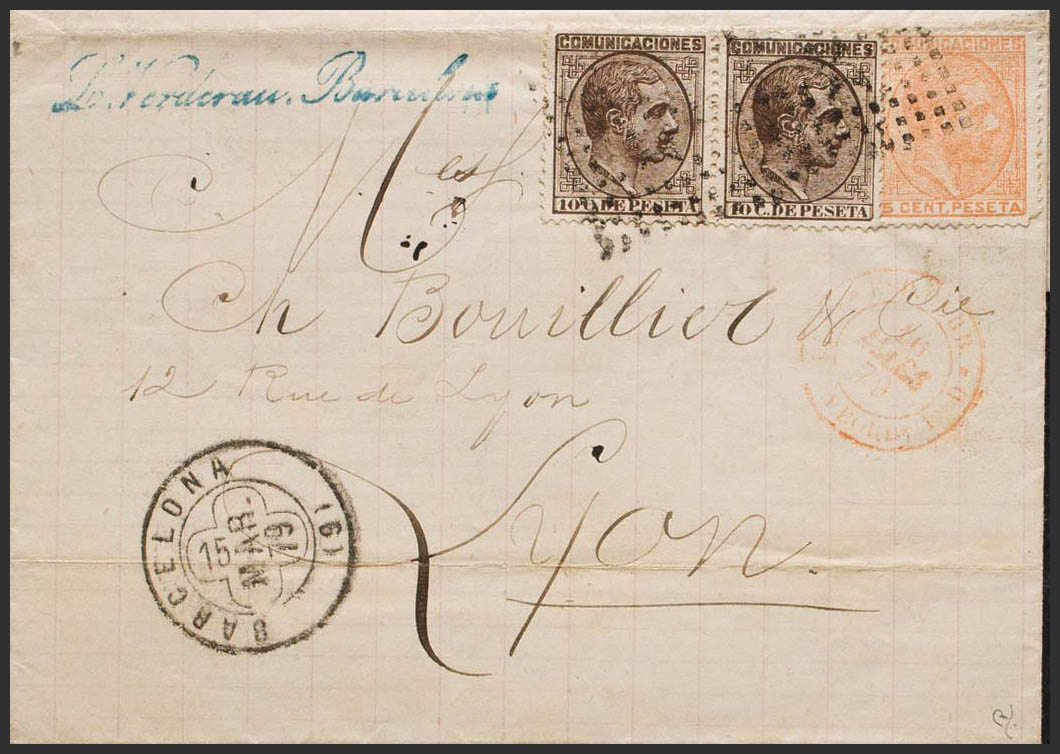 L. Verderau. Barcelona
COMUNICACIONES
10 C. DE PESETA
COMUNICACIONES
10 C. DE PESETA
COMUNICACIONES
5 CENT. PESETA
Mess
Ch Bouillier & Cie
12 Rue de Lyon
Lyon.
BARCELONA
(6)
15
MAR.
79
16
MARS
79